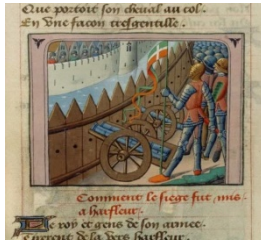 Que portoit son cheval au col.
En une facon tresgentille.
Comment le siege fut mis
a harfleur.
Le roy et gens de son armee
de la vers harfleur.